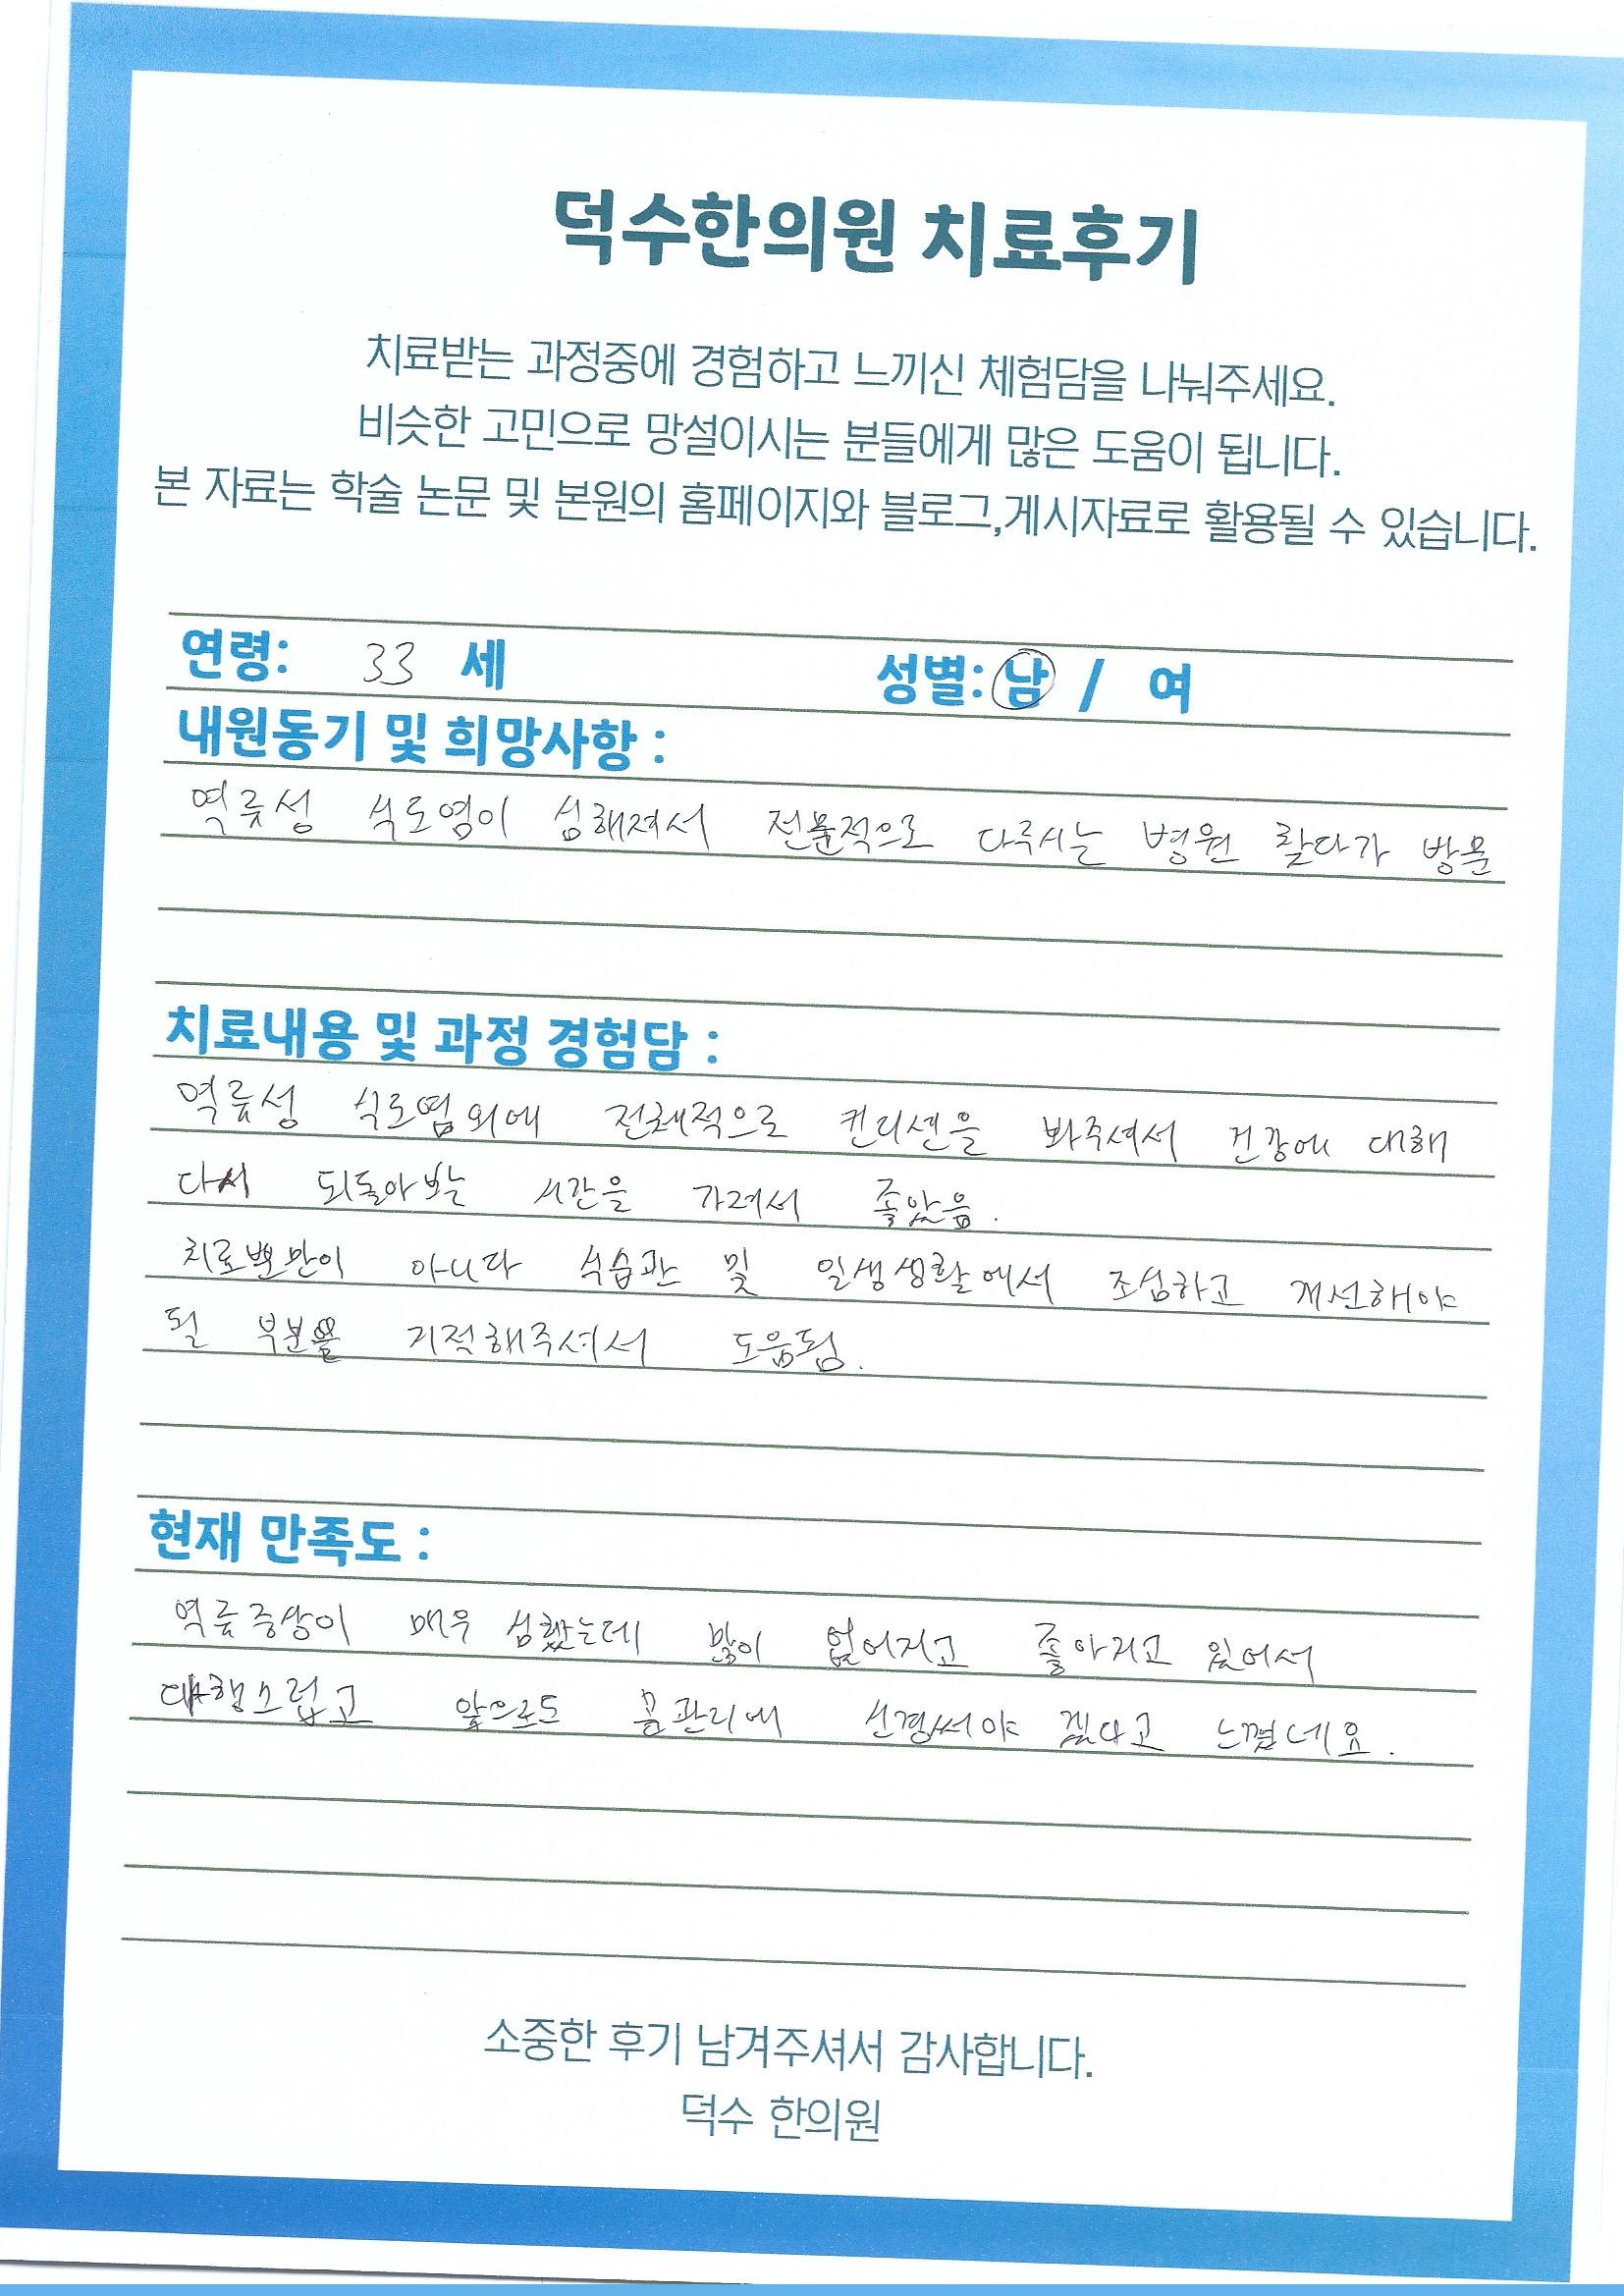 덕수한의원 치료후기
치료받는 과정중에 경험하고 느끼신 체험담을 나눠주세요.
비슷한 고민으로 망설이시는 분들에게 많은 도움이 됩니다.
본 자료는 학술 논문 및 본원의 홈페이지와 블로그,게시자료로 활용될 수 있습니다.
연령: 33 세 성별: 남 / 여
내원동기 및 희망사항 :
역류성 식도염이 심해져서 전문적으로 다루시는 병원 찾다가 방문
치료내용 및 과정 경험담 :
역류성 식도염외에 전체적으로 컨디션을 봐주셔서 건강에 대해
다시 되돌아보는 시간을 가져서 좋았음.
치료뿐만이 아니라 식습관 및 일생생활에서 조심하고 개선해야
될 부분을 지적해주셔서 도움됨.
현재 만족도 :
역류증상이 매우 심했는데 많이 없어지고 좋아지고 있어서
다행스럽고 앞으로도 몸관리에 신경써야 겠다고 느꼈네요.
소중한 후기 남겨주셔서 감사합니다.
덕수 한의원